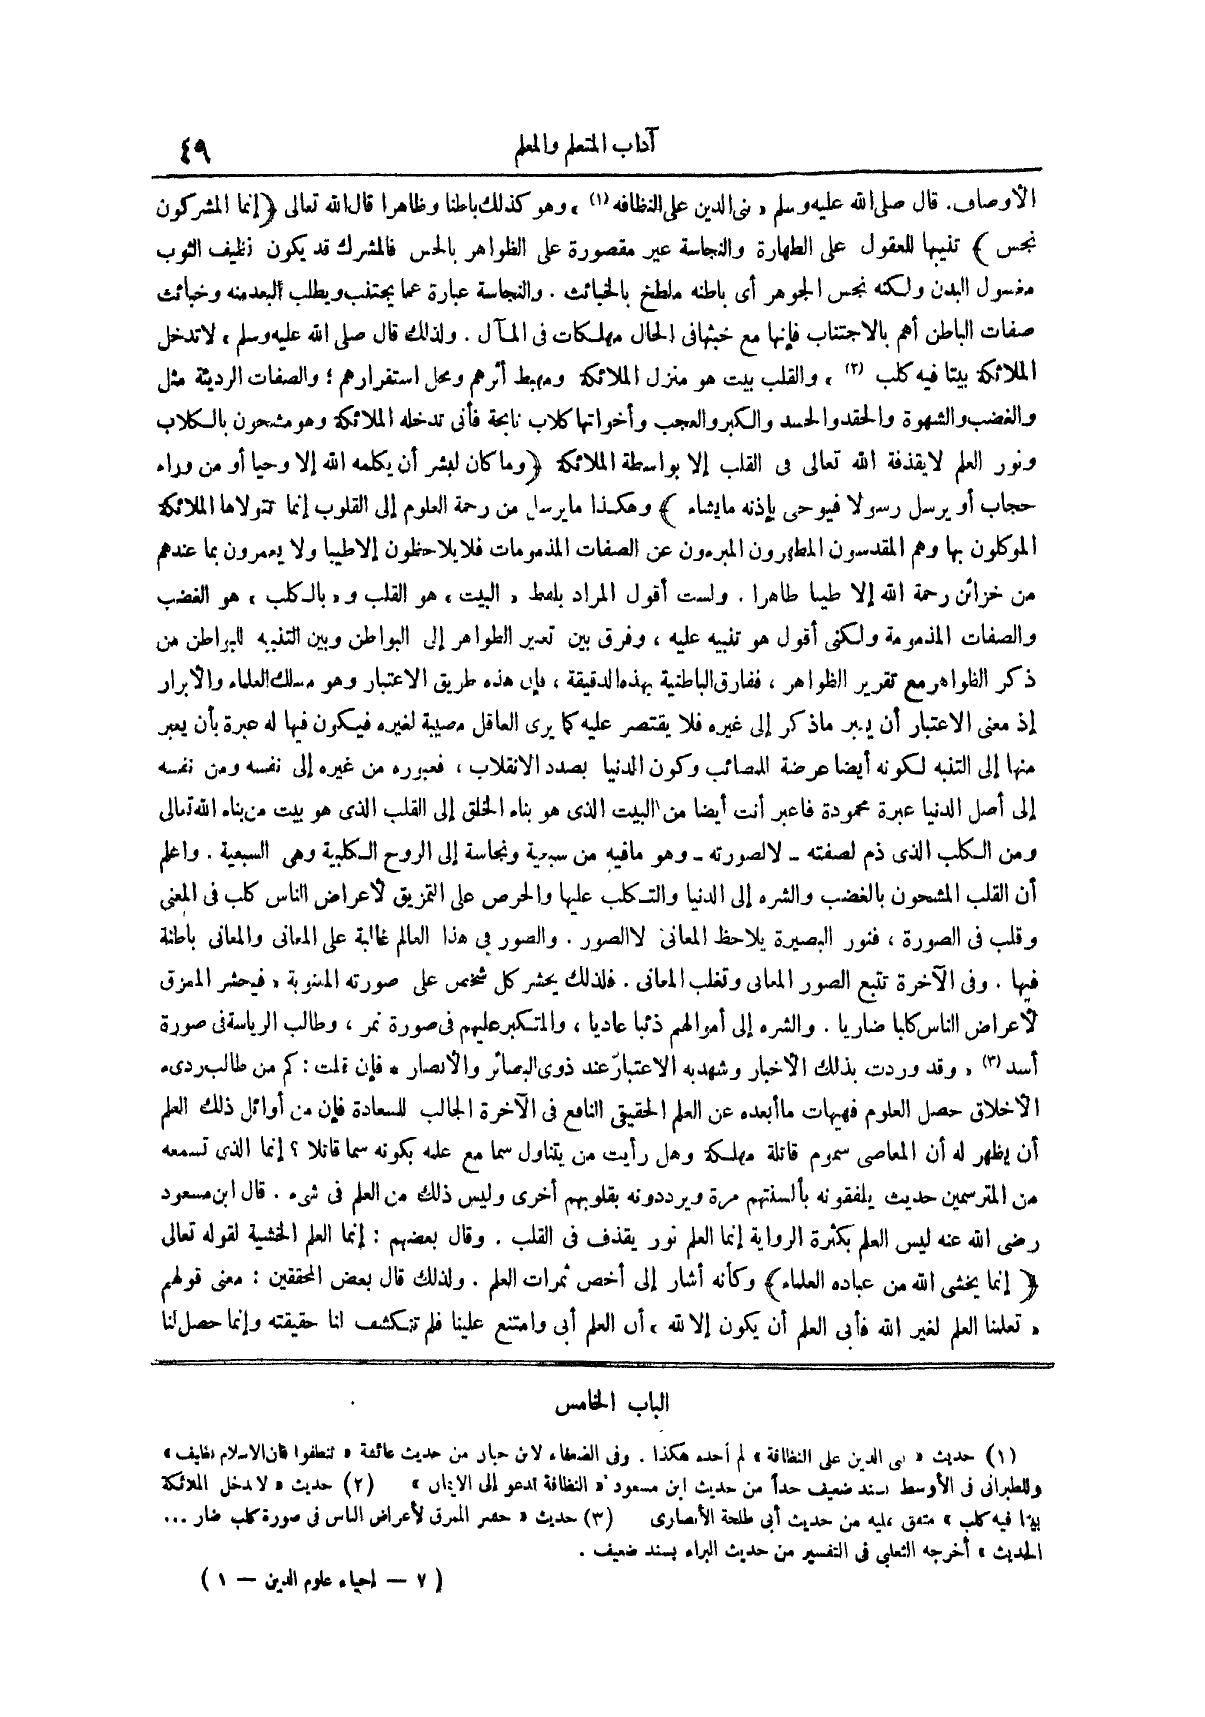 آداب المتعلم والمعلم
٤٩
الأوصاف. قال صلى الله عليه وسلم « بنى الدين على النظافه (١) » وهو كذلك باطنا وظاهرا قال الله تعالى ﴿ إنما المشركون
نجس ﴾ تنبيها للعقول على الطهارة والنجاسة غير مقصورة على الظواهر بالحس فالمشرك قد يكون نظيف الثوب
مغسول البدن ولكنه نجس الجوهر أى باطنه ملطخ بالخبائث . والنجاسة عبارة عما يجتنب ويطلب البعد منه وخبائث
صفات الباطن أهم بالاجتناب فإنها مع خبثها فى الحال مهلكات فى المآل . ولذلك قال صلى الله عليه وسلم « لا تدخل
الملائكة بيتا فيه كلب (٢) » والقلب بيت هو منزل الملائكة ومهبط أثرهم ومحل استقرارهم ؛ والصفات الرديئة مثل
والغضب والشهوة والحقد والحسد والكبر والعجب وأخواتها كلاب نابحة فأنى تدخله الملائكة وهو مشحون بالكلاب
ونور العلم لا يقذفة الله تعالى فى القلب إلا بواسطة الملائكة ﴿ وما كان لبشر أن يكلمه الله إلا وحيا أو من وراء
حجاب أو يرسل رسولا فيوحى بإذنه ما يشاء ﴾ وهكذا ما يرسل من رحمة العلوم إلى القلوب إنما تتولاها الملائكة
الموكلون بها وهم المقدسون المطهرون المبرءون عن الصفات المذمومات فلا يلاحظون إلا طيبا ولا يعمرون بما عندهم
من خزائن رحمة الله إلا طيبا طاهرا . ولست أقول المراد بلفظ « البيت » هو القلب و « بالكلب » هو الغضب
والصفات المذمومة ولكنى أقول هو تنبيه عليه ، وفرق بين تعبير الظواهر إلى البواطن وبين التنبيه للبواطن من
ذكر الظواهر مع تقرير الظواهر ، ففارق الباطنية بهذه الدقيقة ، فإن هذه طريق الاعتبار وهو مسلك العلماء والأبرار
إذ معنى الاعتبار أن يعبر ما ذكر إلى غيره فلا يقتصر عليه كما يرى العاقل مصيبة لغيره فيكون فيها له عبرة بأن يعبر
منها إلى التنبه لكونه أيضا عرضة للمصائب وكون الدنيا بصدد الانقلاب ، فعبوره من غيره إلى نفسه ومن نفسه
إلى أصل الدنيا عبرة محمودة فاعبر أنت أيضا من البيت الذى هو بناء الخلق إلى القلب الذى هو بيت من بناء الله تعالى
ومن الكلب الذى ذم لصفته ـ لا لصورته ـ وهو ما فيه من سبعية ونجاسة إلى الروح الكلبية وهى السبعية . واعلم
أن القلب المشحون بالغضب والشره إلى الدنيا والتكلب عليها والحرص على التمزيق لأعراض الناس كلب فى المعنى
وقلب فى الصورة ، فنور البصيرة يلاحظ المعانى لا الصور . والصور فى هذا العالم غالبة على المعانى والمعانى باطنة
فيها . وفى الآخرة تتبع الصور المعانى وتغلب المعانى . فلذلك يحشر كل شخص على صورته المعنوية « فيحشر الممزق
لأعراض الناس كلبا ضاريا . والشره إلى أموالهم ذئبا عاديا ، والمتكبر عليهم فى صورة نمر ، وطالب الرياسة فى صورة
أسد (٣) » وقد وردت بذلك الأخبار وشهد به الاعتبار عند ذوى البصائر والأبصار * فإن قلت : كم من طالب ردىء
الأخلاق حصل العلوم فهيهات ما أبعده عن العلم الحقيقى النافع فى الآخرة الجالب للسعادة فإن من أوائل ذلك العلم
أن يظهر له أن المعاصى سموم قاتلة مهلكة وهل رأيت من يتناول سما مع علمه بكونه سما قاتلا ؟ إنما الذى تسمعه
من المترسمين حديث يلفقونه بألسنتهم مرة ويرددونه بقلوبهم أخرى وليس ذلك من العلم فى شىء . قال ابن مسعود
رضى الله عنه ليس العلم بكثرة الرواية إنما العلم نور يقذف فى القلب . وقال بعضهم : إنما العلم الخشية لقوله تعالى
﴿ إنما يخشى الله من عباده العلماء ﴾ وكأنه أشار إلى أخص ثمرات العلم . ولذلك قال بعض المحققين : معنى قولهم
« تعلمنا العلم لغير الله فأبى العلم أن يكون إلا لله » أن العلم أبى وامتنع علينا فلم تنكشف لنا حقيقته وإنما حصل لنا
الباب الخامس
(١) حديث « بنى الدين على النظافة » لم أجده هكذا . وفى الضعفاء لابن حبان من حديث عائشة « تنظفوا فان الاسلام نظيف »
وللطبرانى فى الأوسط بسند ضعيف جداً من حديث ابن مسعود « النظافة تدعو إلى الايمان » (٢) حديث « لا تدخل الملائكة
بيتا فيه كلب » متفق عليه من حديث أبى طلحة الأنصارى (٣) حديث « حشر الممزق لأعراض الناس فى صورة كلب ضار ...
الحديث » أخرجه الثعلبى فى التفسير من حديث البراء بسند ضعيف .
( ٧ — إحياء علوم الدين — ١ )